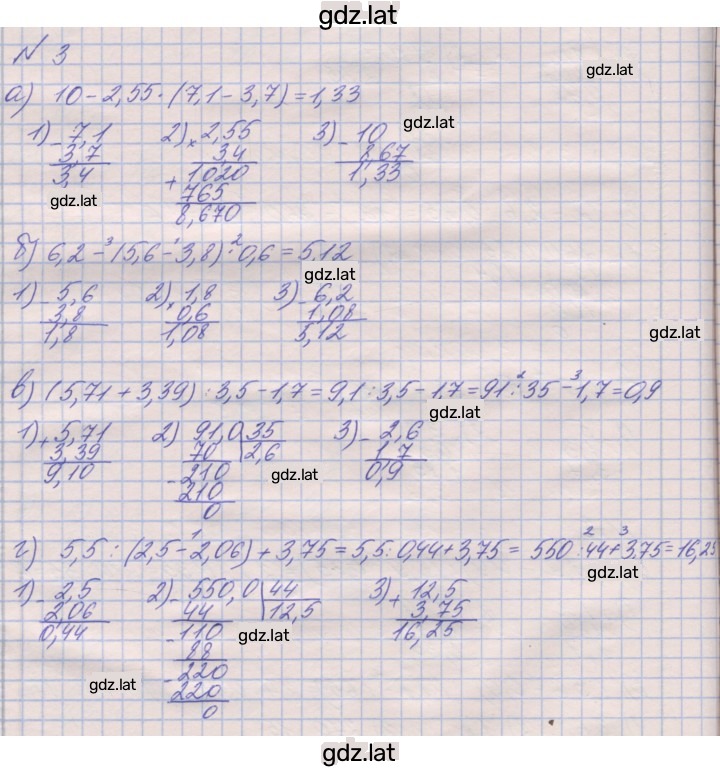 gdz.lat
N 3
gdz.lat
а) 10 - 2,55 · (7,1 - 3,7) = 1,33
1) - 7,1 2) × 2,55 3) - 10 gdz.lat
3,7 34 8,67
3,4 + 1020 1,33
gdz.lat 765
8,670
б) 6,2 -³ (5,6 -¹ 3,8) ·² 0,6 = 5,12
gdz.lat
1) - 5,6 2) × 1,8 3) - 6,2
3,8 0,6 1,08
1,8 1,08 5,12
gdz.lat
в) (5,71 + 3,39) : 3,5 - 1,7 = 9,1 : 3,5 - 1,7 = 91 :² 35 -³ 1,7 = 0,9
gdz.lat
1) + 5,71 2) 91,0 35 3) - 2,6
3,39 70 2,6 1,7
9,10 - 210 0,9
gdz.lat
210
0
г) 5,5 : (2,5 -¹ 2,06) + 3,75 = 5,5 : 0,44 + 3,75 = 550 :² 44 +³ 3,75 = 16,25
gdz.lat
1) - 2,5 2) - 550,0 44 3) + 12,5
2,06 44 12,5 3,75
0,44 - 110 16,25
gdz.lat
88
- 220
gdz.lat
220
0
gdz.lat